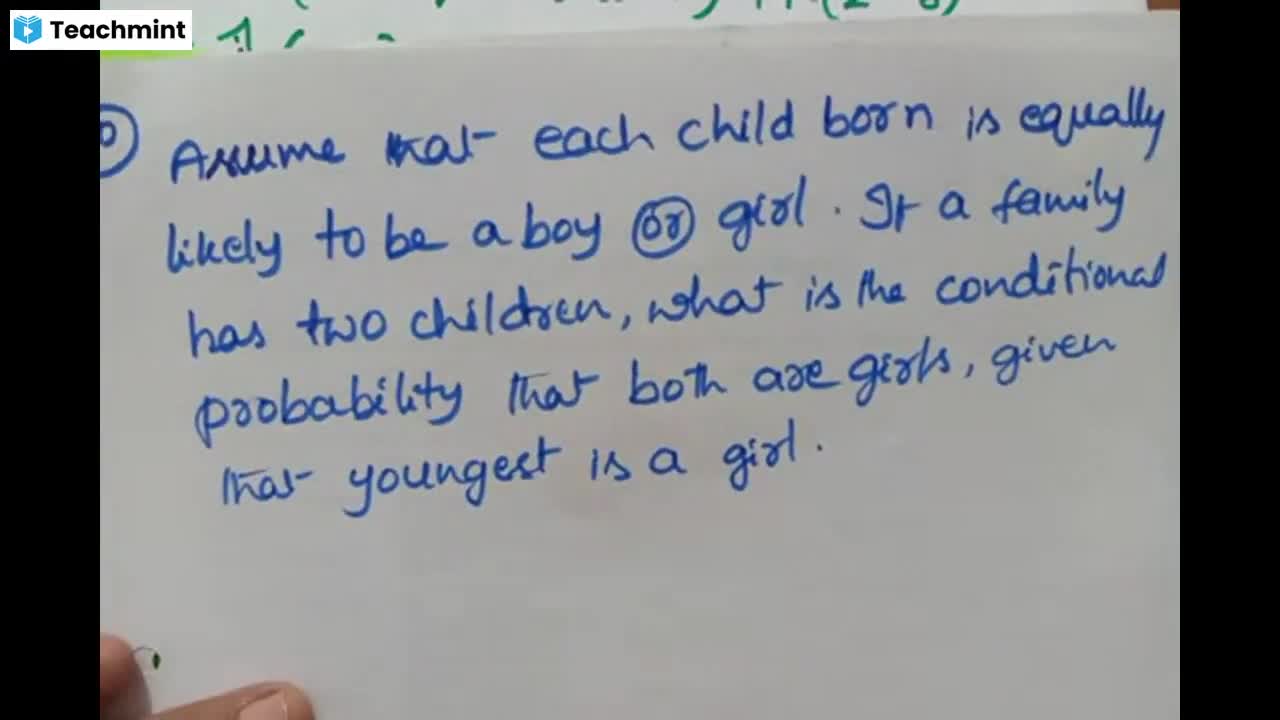 Teachmint
Assume that each child born is equally
likely to be a boy or girl. If a family
has two children, what is the conditional
probability that both are girls, given
that youngest is a girl.